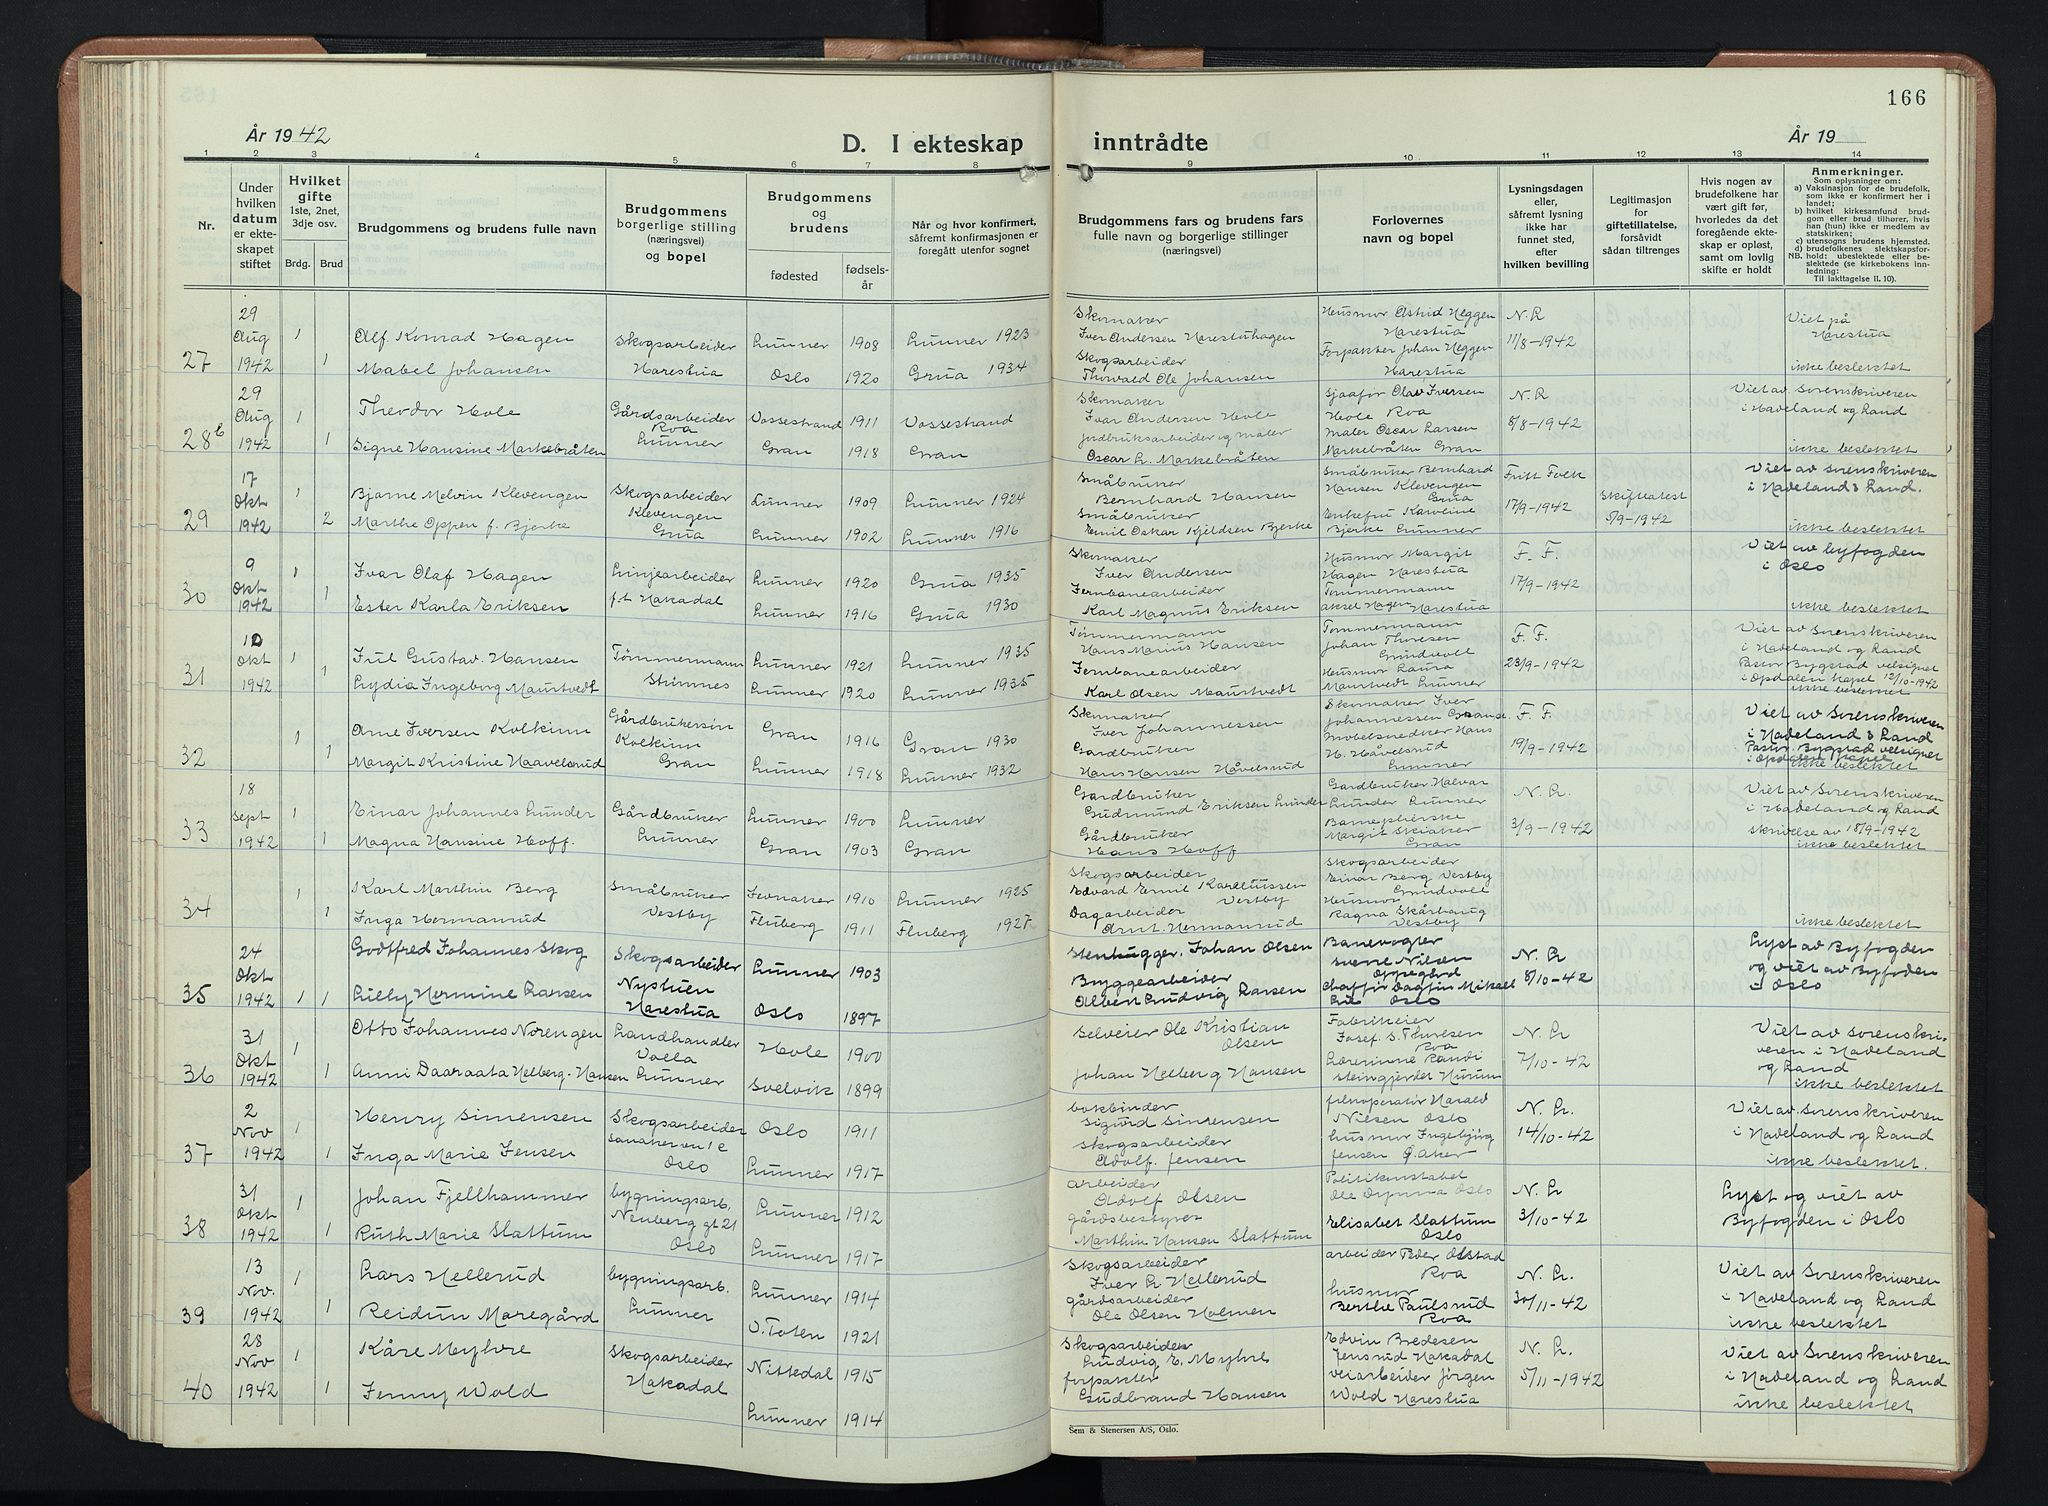 166
År 1942
D. I ekteskap
inntrådte
År 19
1 2 3 4 5 6 7 8 9 10 11 12 13 14
Nr.
Under hvilken datum er ekteskapet stiftet
Hvilket gifte
1ste, 2net, 3dje osv.
Brdg. Brud
Brudgommens og brudens fulle navn
Brudgommens borgerlige stilling (næringsvei) og bopel
Brudgommens og brudens
fødested
fødselsår
Når og hvor konfirmert, såfremt konfirmasjonen er foregått utenfor sognet
Brudgommens fars og brudens fars fulle navn og borgerlige stillinger (næringsvei)
Forlovernes navn og bopel
Lysningsdagen eller, såfremt lysning ikke har funnet sted, efter hvilken bevilling
Legitimasjon for giftetillatelse, forsåvidt sådan tiltrenges
Hvis nogen av brudefolkene har vært gift før, hvorledes da det foregående ekteskap er opløst, samt om lovlig skifte er holdt
Anmerkninger.
Som oplysninger om:
a) Vaksinasjon for de brudefolk, som ikke er konfirmert her i landet;
b) hvilket kirkesamfund brudgom eller brud tilhører, hvis han (hun) ikke er medlem av statskirken;
c) utensogns brudens hjemsted.
d) brudefolkenes slektskapsforhold: ubeslektede eller beslektede (se kirkebokens innledning:
NB. Til iakttagelse II. 10).
27 29 Aug 1942 1 1
Alf Konrad Hagen Skogsarbeider Lunner 1908 Lunner 1923
Mabel Johansen Harestua Oslo 1920 Grua 1934
Skomaker
Iver Andersen Harestuhagen
Skogsarbeider
Thorvald Ole Johansen
Husmor Astrid Heggen
Harestua
Forpakter Johan Heggen
Harestua
N. R
11/8-1942
Viet på
Harestua
ikke beslektet
28 29 Aug 1942 1 1
Theodor Hole Gårdsarbeider Vossestrand 1911 Vossestrand
Roa
Signe Hansine Markebråten Lunner Gran 1918 Gran
Skomaker
Ivar Andersen Hole
jordbruksarbeider og maler
Oscar L. Markebråten
Sjaafør Olav Iversen
Hole Roa
maler Oscar Larsen
Markebråten Gran
N. R
8/8-1942
Viet av Sorenskriveren
i Hadeland og Land
ikke beslektet
29 17 Okt 1942 1 2
Bjarne Melvin Klevengen Skogsarbeider Lunner 1909 Lunner 1924
Klevengen
Marthe Oppen f. Bjerke Grua Lunner 1902 Lunner 1916
Småbruker
Bernhard Hansen
Småbruker
Emil Oskar Kjeldsen Bjerke
Småbruker Bernhard
Hansen Klevengen
Grua
Enkefru Karoline
Bjerke Lunner
Fritt Folk
17/9-1942
Skifteatest
5/9-1942
Viet av Sorenskriveren
i Hadeland & Land.
ikke beslektet
30 9 Okt 1942 1 1
Ivar Olaf Hagen Linjearbeider Lunner 1920 Grua 1935
Ester Karla Eriksen f.t Hakadal Lunner 1916 Grua 1930
Skomaker
Iver Andersen
Jernbanearbeider
Karl Magnus Eriksen
Husmor Margit
Hagen Harestua
Tømmermann
Aksel Hagen Harestua
F. F.
17/9-1942
Viet av byfogden
i Oslo
ikke beslektet
31 10 Okt 1942 1 1
Juul Gustav Hansen Tømmermann Lunner 1921 Lunner 1935
Lydia Ingeborg Maurtvedt Lunner 1920 Lunner 1935
Tømmermann
Hans Marius Hansen
Jernbanearbeider
Karl Olsen Maurtvedt
Tømmermann
Johan Thoresen
Grindvoll
Husmor Laura
Maurtvedt Lunner
F. F.
23/9-1942
Viet av Sorenskriveren
i Hadeland og Land
Pastor Bygstad velsignet
i Opdalen kapel 12/10-1942
ikke beslektet
32 1 1
Arne Iversen Kolkinn Gårdbrukersøn Gran 1916 Gran 1930
Kolkinn
Margit Kristine Haavelsrud Gran Lunner 1918 Lunner 1932
Skomaker
Iver Johannessen
Gardbruker
Hans Hansen Håvelsrud
Skomaker Iver
Johannessen
møbelsnedker Hans
H. Håvelsrud
Lunner
F. F.
19/9-1942
Viet av Sorenskriveren
i Hadeland & Land
Pastor Bygstad velsignet
i Opdalen kapel
ikke beslektet
33 18 Sept 1942 1 1
Einar Johannes Lunder Gårdbruker Lunner 1900 Lunner
Magna Hansine Hoff. Lunner Gran 1903 Gran
Gardbruker
Gudmund Eriksen Lunder
Gårdbruker
Hans Hoff
Gardbruker Halvar
Lunder Lunner
Barnepleierske
Margit Skiaker
Gran
N. L.
3/9-1942
Viet av Sorenskriveren
i Hadeland og Land
skrivelse av 18/9-1942
ikke beslektet
34 1 1
Karl Marthin Berg Småbruker Jevnaker 1910 Lunner 1925
Inga Hermanrud Vestby Fluberg 1911 Fluberg 1927
Skogsarbeider
Edvard Emil Kareliussen
Vestby
Dagarbeider
Arnt Hermanrud
Skogsarbeider
Einar Berg Vestby
Grindvoll
Husmor
Ragna Skårhaug
Vestby
ikke beslektet
35 24 Okt 1942 1 1
Godtfred Johannes Skog Skogsarbeider Lunner 1903
Nystuen
Lilly Hermine Larsen Harestua Oslo 1897
Stenhugger Johan Olsen
Byggearbeider
Albert Ludvig Larsen
Banevogter
Sverre Nilsen
Oppegård
Chaffør Dagfin Mikael
Lie Oslo
N. L
8/10-42
Lyst av Byfogden
og viet av Byfogden
i Oslo
36 31 Okt 1942 1 1
Otto Johannes Norengen Landhandler Hole 1900
Volla
Anni Daaraata Helberg-Hansen Lunner Svelvik 1899
Selveier Ole Kristian
Olsen
Johan Helberg Hansen
Fabrikeier
Josef S. Thoresen
Roa
Lærerinne Randi
Steingjerdet Hurum
N. L.
7/10-42
Viet av Sorenskri-
veren i Hadeland
og Land
ikke beslektet
37 2 Nov 1942 1 1
Henry Simensen Skogsarbeider Oslo 1911
Inga Marie Jensen Oslo Lunner 1917
bokbinder
Sigurd Simensen
Skogsarbeider
Adolf Jensen
filmoperatør Harald
Nielsen Oslo
husmor Ingebjørg
Jensen Ø. Aker
N. L.
14/10-42
Viet av Sorenskriveren
i Hadeland og Land
ikke beslektet.
38 31 Okt 1942 1 1
Johan Fjellhammer bygningsarb. Lunner 1912
Neuberg gt 21
Ruth Marie Slattum Oslo Lunner 1917
arbeider
Adolf Olsen
gårdsbestyrer
Marthin Hansen Slattum
Politikonstabel
Ole Dynna Oslo
Elisabet Slattum
Oslo
N. L
3/10-42
Lyst og viet av
Byfogden i Oslo
39 13 Nov. 1942 1 1
Lars Hellerud bygningsarb. Lunner 1914
Reidun Maregård Lunner V. Toten 1921
Skogsarbeider
Iver L Hellerud
gårdsarbeider
Ole Olsen Holmen
arbeider Peder Olstad
Roa
husmor
Berthe Paulsrud
Roa
N. L.
30/11-42
Viet av Sorenskriveren
i Hadeland og Land
ikke beslektet
40 28 Nov 1942 1 1
Kåre Myhre Skogsarbeider Nittedal 1915
Jenny Wold Hakadal Lunner 1914
Skogsarbeider
Ludvig E. Myhre
forpakter
Gudbrand Hansen
Edvin Bredesen
Jensrud Hakadal
veiarbeider Jørgen
Wold Harestua
N. L.
5/11-1942
Viet av Sorenskriveren
i Hadeland og Land
ikke beslektet
Sem & Stenersen A/S, Oslo.